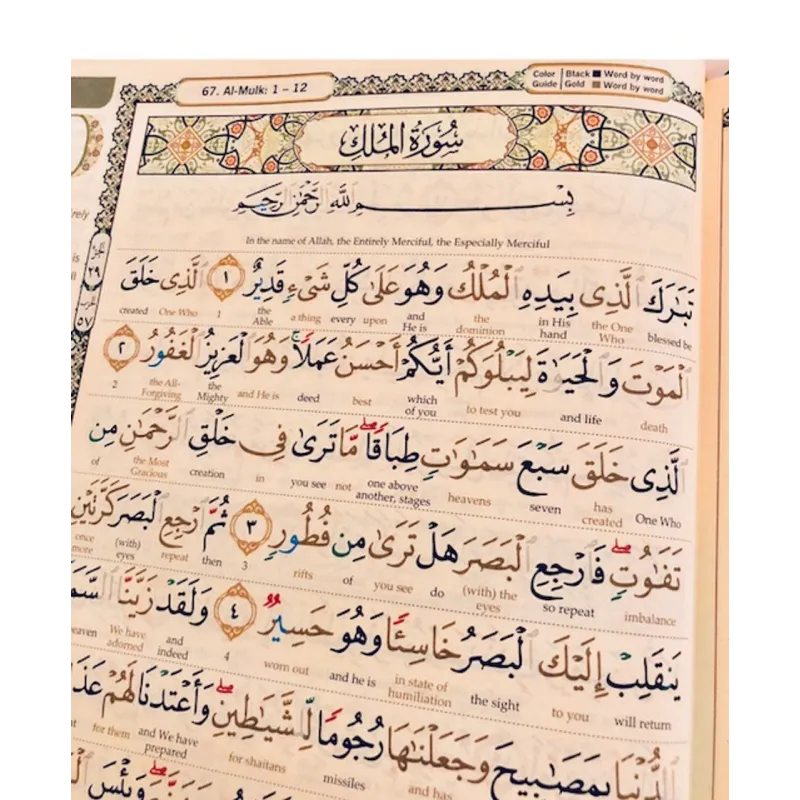 67. Al-Mulk: 1 – 12
Color Guide | Black Word by word
Gold Word by word
سُورَةُ الْمُلْكِ
بِسْمِ اللَّهِ الرَّحْمَٰنِ الرَّحِيمِ
In the name of Allah, the Entirely Merciful, the Especially Merciful
الجزء ٢٩
الحزب ٥٧
تَبَارَكَ الَّذِى بِيَدِهِ الْمُلْكُ وَهُوَ عَلَىٰ كُلِّ شَىْءٍ قَدِيرٌ ١ الَّذِى خَلَقَ
blessed be the One Who in His hand the dominion and He is upon every a thing the Able 1 One Who created
الْمَوْتَ وَالْحَيَوٰةَ لِيَبْلُوَكُمْ أَيُّكُمْ أَحْسَنُ عَمَلًا ۚ وَهُوَ الْعَزِيزُ الْغَفُورُ ٢
death and life to test you which of you best deed and He is the Mighty the All-Forgiving 2
الَّذِى خَلَقَ سَبْعَ سَمَٰوَٰتٍ طِبَاقًا ۖ مَّا تَرَىٰ فِى خَلْقِ الرَّحْمَٰنِ مِن
One Who has created seven heavens one above another, stages not you see in creation the Most Gracious of
تَفَٰوُتٍ ۖ فَارْجِعِ الْبَصَرَ هَلْ تَرَىٰ مِن فُطُورٍ ٣ ثُمَّ ارْجِعِ الْبَصَرَ كَرَّتَيْنِ
imbalance so repeat (with) the eyes do you see of rifts 3 then repeat (with) eyes once more
يَنقَلِبْ إِلَيْكَ الْبَصَرُ خَاسِئًا وَهُوَ حَسِيرٌ ٤ وَلَقَدْ زَيَّنَّا
will return to you the sight in state of humiliation and he is worn out 4 and indeed We have adorned
الدُّنْيَا بِمَصَٰبِيحَ وَجَعَلْنَٰهَا رُجُومًا لِّلشَّيَٰطِينِ ۖ وَأَعْتَدْنَا لَهُمْ
and has missiles for shaitans and We have prepared for them
وَبِئْسَ